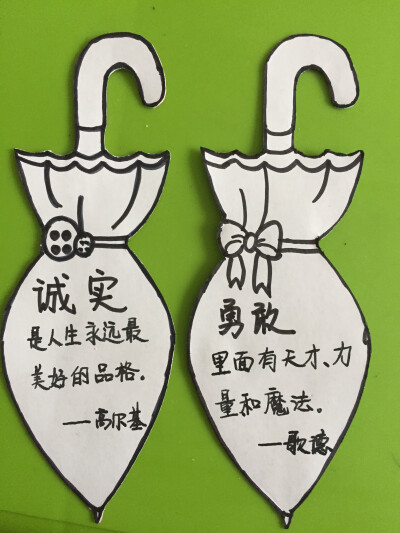 诚实
是人生永远最
美好的品格。
——高尔基
勇敢
里面有天才、力
量和魔法。
——歌德